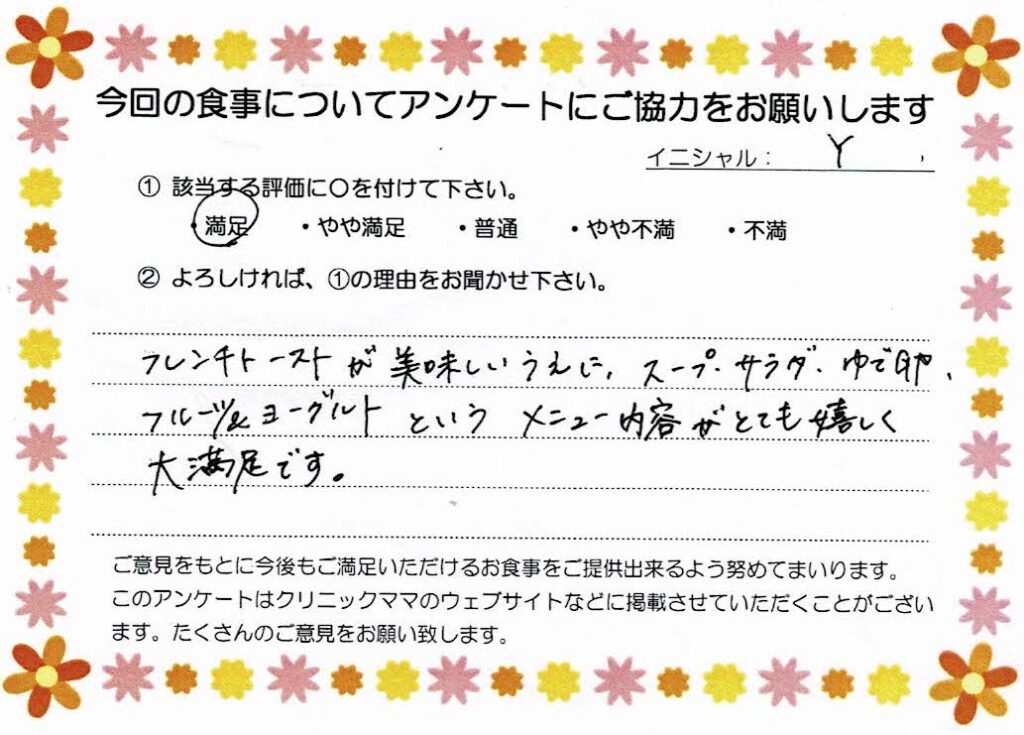 今回の食事についてアンケートにご協力をお願いします
イニシャル： Y
① 該当する評価に〇を付けて下さい。
・満足 ・やや満足 ・普通 ・やや不満 ・不満
② よろしければ、①の理由をお聞かせ下さい。
フレンチトーストが美味しいうえに、スープ・サラダ・ゆで卵、
フルーツ&ヨーグルトという メニュー内容がとても嬉しく
大満足です。
ご意見をもとに今後もご満足いただけるお食事をご提供出来るよう努めてまいります。
このアンケートはクリニックママのウェブサイトなどに掲載させていただくことがござい
ます。たくさんのご意見をお願い致します。